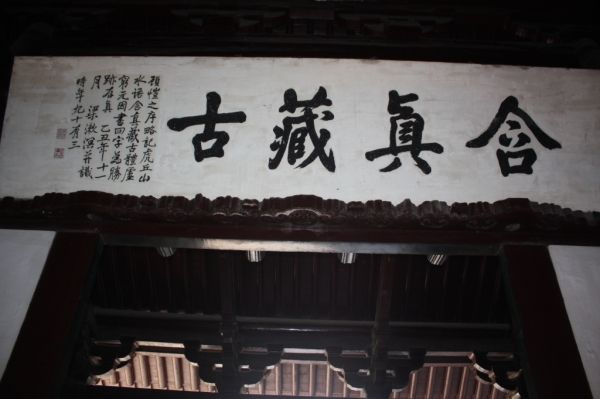 含真藏古
顧愷之序略記虎丘山
水語含真藏古體虛
窮元因書四字為勝
跡存真 乙丑年十一
月 梁漱溟并識
時年九十有三